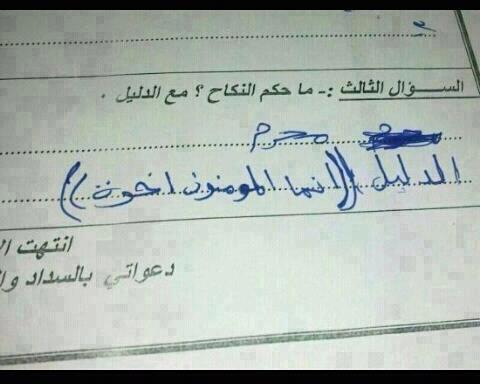 السؤال الثالث :- ما حكم النكاح ؟ مع الدليل .
محرم
الدليل ((انما المومنون اخونة))
انتهت
دعواتي بالسداد